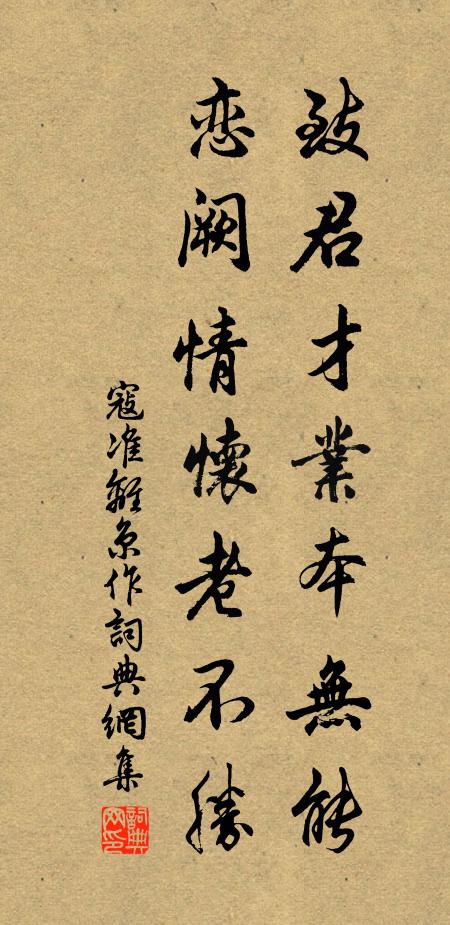 致君才業本無能
戀闕情懷老不勝
寇准離京作詞典網集
詞典網印